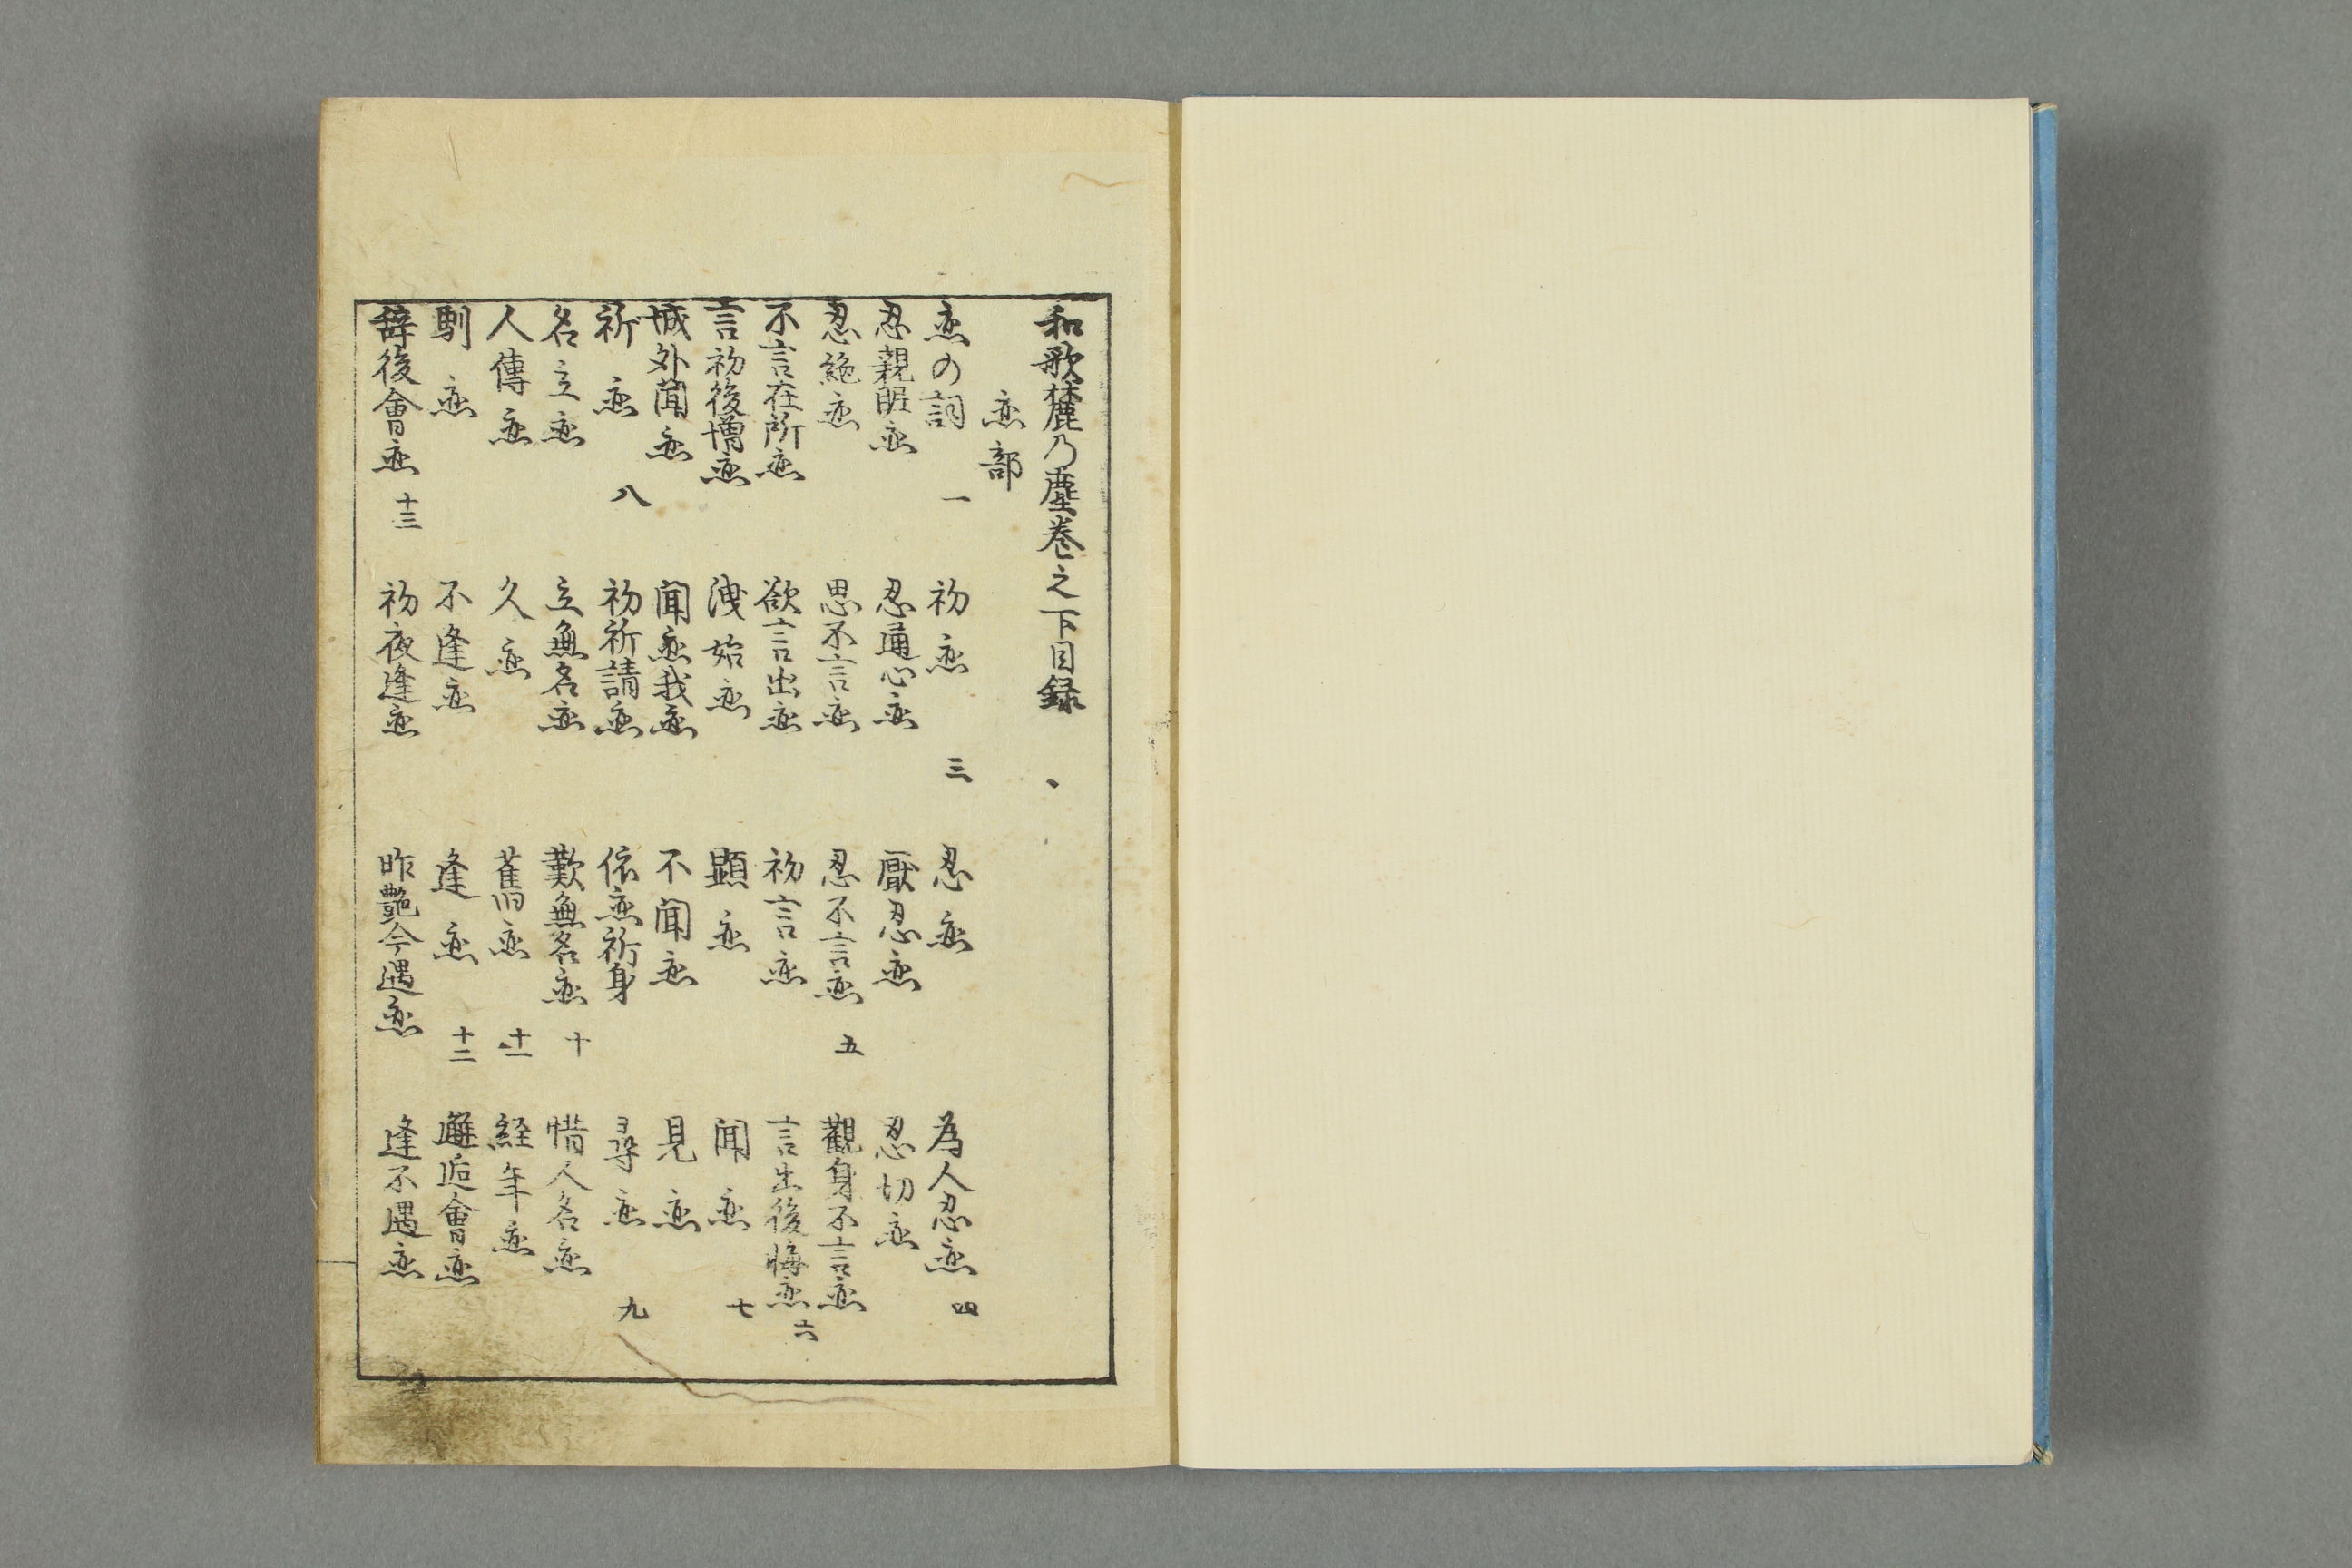 和歌麓乃塵巻之下目録
恋部
恋の詞 一 初恋 三 忍恋 為人忍恋 四
忍親昵恋 忍通心恋 厭忍恋 忍切恋
忍絶恋 思不言恋 忍不言恋 五 觀身不言恋
不言在所恋 欲言出恋 初言恋 言出後悔恋 六
言初後増恋 洩始恋 顕恋 聞恋 七
城外聞恋 聞恋我恋 不聞恋 見恋
祈恋 八 初祈請恋 依恋祈身 尋恋 九
名立恋 立無名恋 歎無名恋 十 惜人名恋
人傳恋 久恋 舊恋 十一 経年恋
馴恋 不逢恋 逢恋 十二 邂逅會恋
辞後會恋 十三 初夜逢恋 昨艶今遇恋 逢不遇恋